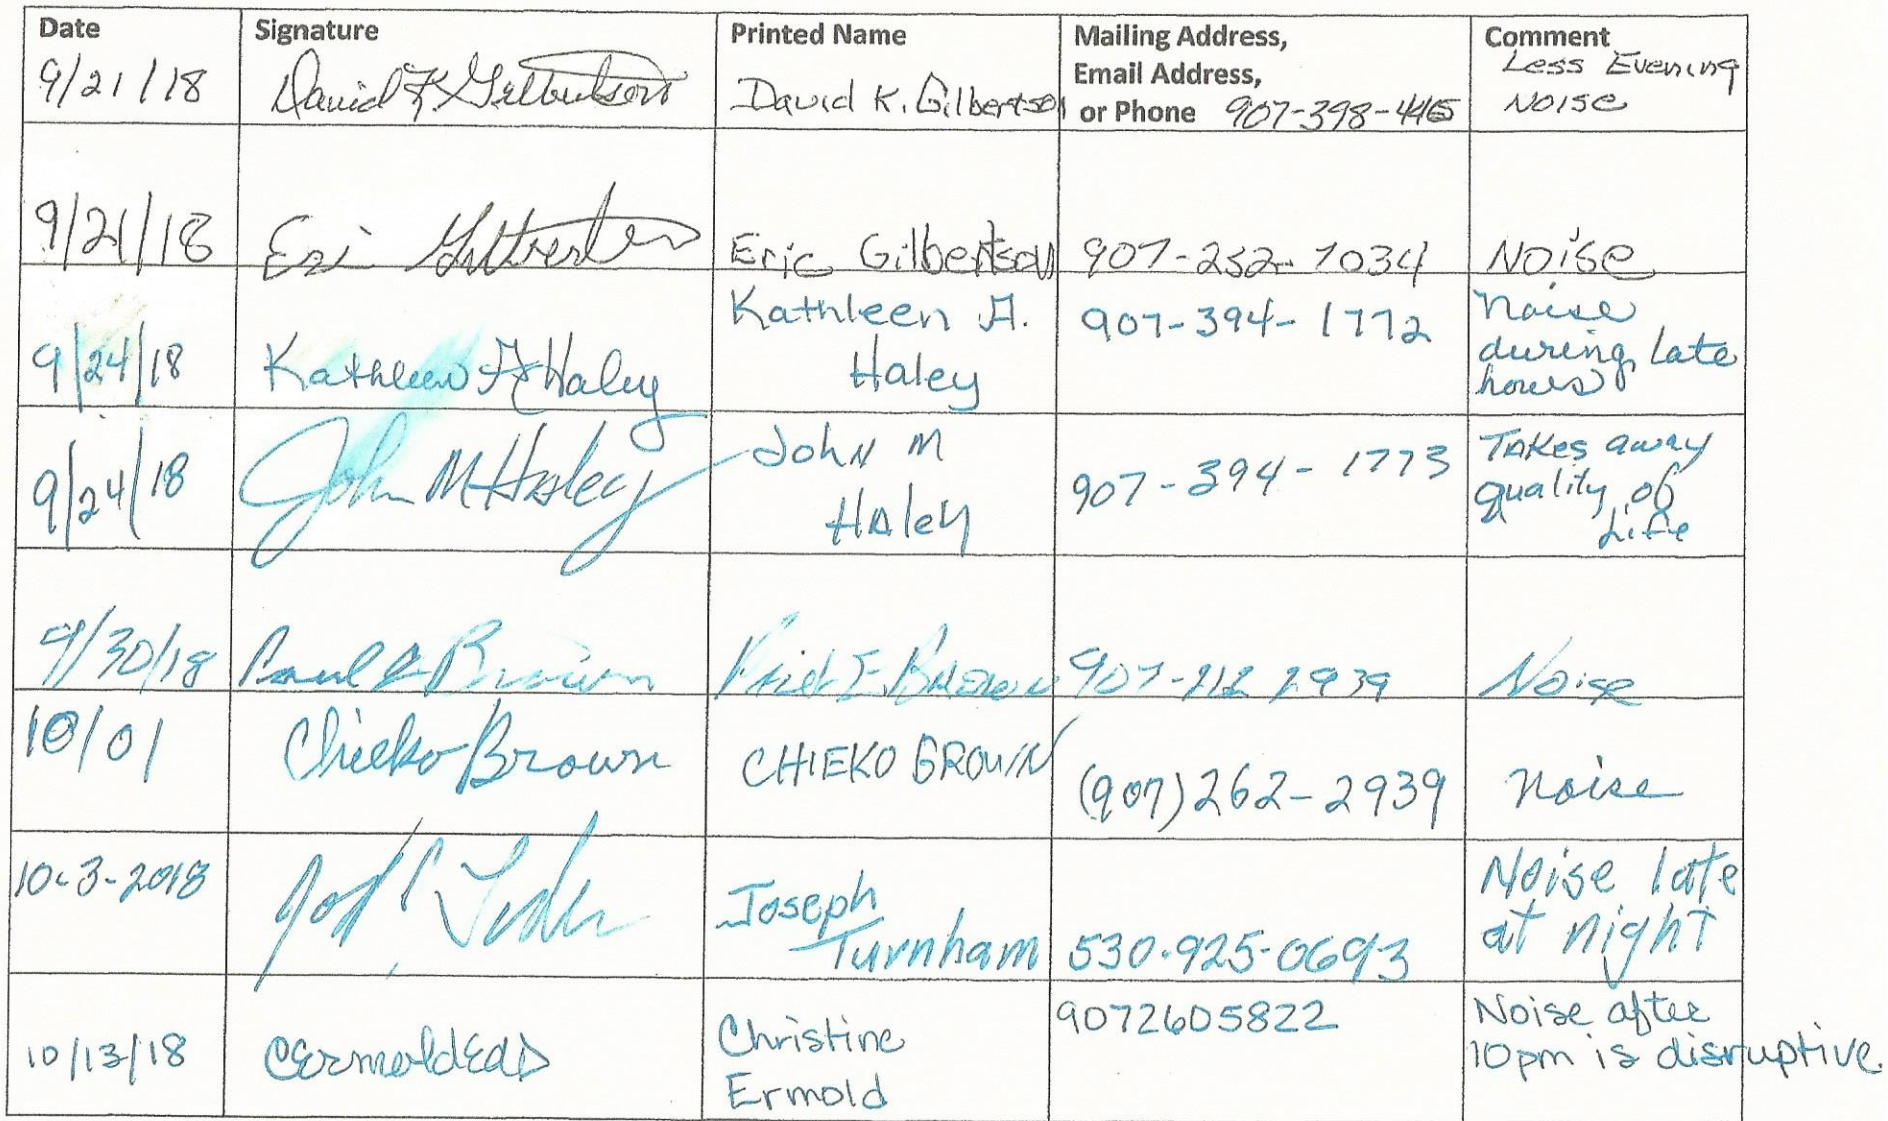 Date Signature Printed Name Mailing Address, Email Address, or Phone Comment
9/21/18 David K Gilbertson David K. Gilbertson 907-398- Less Evening Noise
9/21/18 Eric Gilbertson Eric Gilbertson 907-252-7034 Noise
9/24/18 Kathleen A Haley Kathleen A. Haley 907-394-1772 Noise during late hours
9/24/18 John M Haley John M Haley 907-394-1773 Takes away quality of Life
9/30/18 Paul E Brown E. Brown 907- 2939 Noise
10/01 Chieko Brown CHIEKO BROWN (907)262-2939 Noise
10-3-2018 Joseph Turnham 530-925-0693 Noise late at night
10/13/18 CErmoldEdD Christine Ermold 9072605822 Noise after 10pm is disruptive.